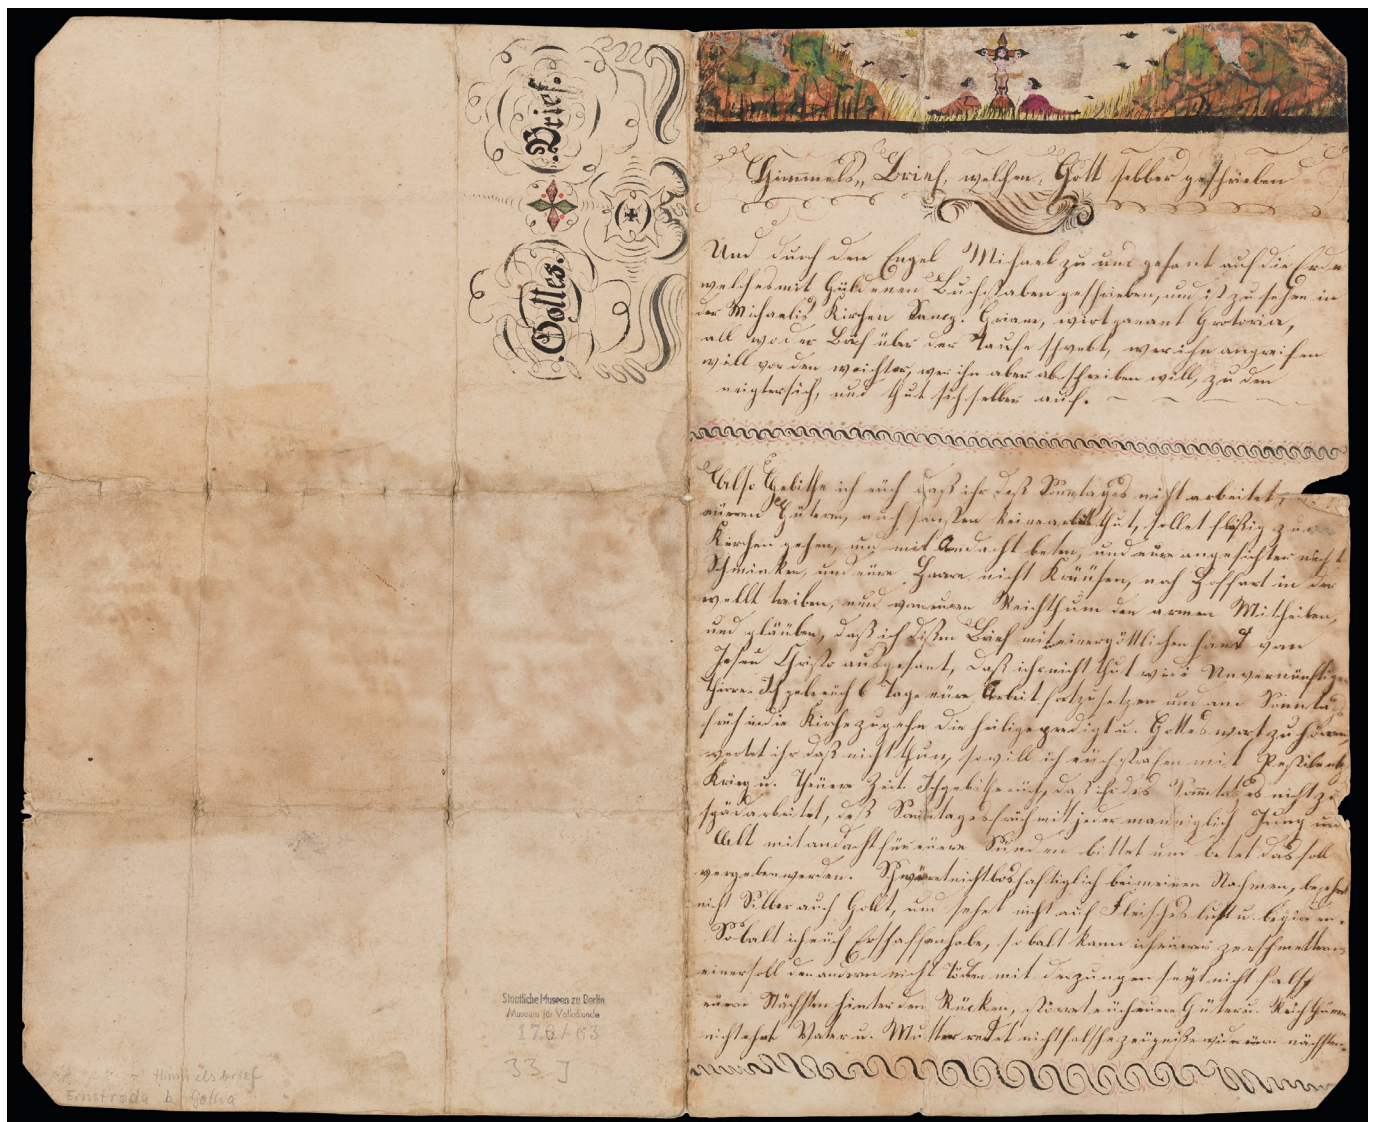 .Gottes.
.Brief.
Himmels„ Brief, welchen, Gott selber geschrieben
Und durch den Engel Mihael zu uns gesant auf die Erde
welches mit Güldenen Buchstaben geschrieben, und ist zu sehen in
der Michaelis Kirchen Sancg. Griam, wirt genant Grotoria,
all wo der Brif über der Taufe schwebt, wer ihn angreifen
will vor den weichter, wer ihn aber ab schreiben will, zu den
neigter sich, und thut sich selber auf.
Also Gebithe ich eüch daß ihr deß Sonntages nicht arbeitet,
eüeren Güteren, auch sonsten keine arbeit thut, sollet fleißig zu
Kirchen gehen, und mit Andacht beten, und eure angesichter nicht
Schminken, und eüre Haare nicht Kräüsen, noch Hoffart in der
wellt treiben, und von euren Reichthum den armen Mitheilen,
und gläuben, daß ich dißen Brief mit einer göttlichen hand von
Jesu Christo ausgesant, daß ihr nicht thut wie die Unvernünftigen
thiere. Ich gebe eüch 6 Tage eüre Arbeit fortzusetzen und am Sonntag
früh in die Kirche zu gehn die heilige predigt u. Gottes wort zu hören,
werdet ihr daß nicht thun, so will ich eüch strafen mit Pestilentz
Krieg u. Theüere Zeit. Ich gebithe eüch, das ihr des Sonntages nicht zu
späd arbeitet, deß Sonntages früh mit jeder manniglich Jung und
Allt mit andacht für eüere Sünden bittet und betet das soll
vergeben werden. Schwöret nicht boshaftiglich bei meinen Nahmen, begehrt
nicht Silber auch Gollt, und sehet nicht auf Fleisches lust u. begirden.
So balt ich eüch Erschaffen habe, so balt kann ich eueren zerschmettern
einer soll den andern nicht Töden mit der zungen seyt nicht falsch
eüren Nächsten hinter den Rücken, eüch eurer Güter u. Reichthumer
nicht ehret Vater u. Mutter redet nicht falsche zeügniße wider eüren nächsten.
Staatliche Museen zu Berlin
Museum für Volkskunde
178/63
33 J
Himmelsbrief
Ernstroda b. Gotha